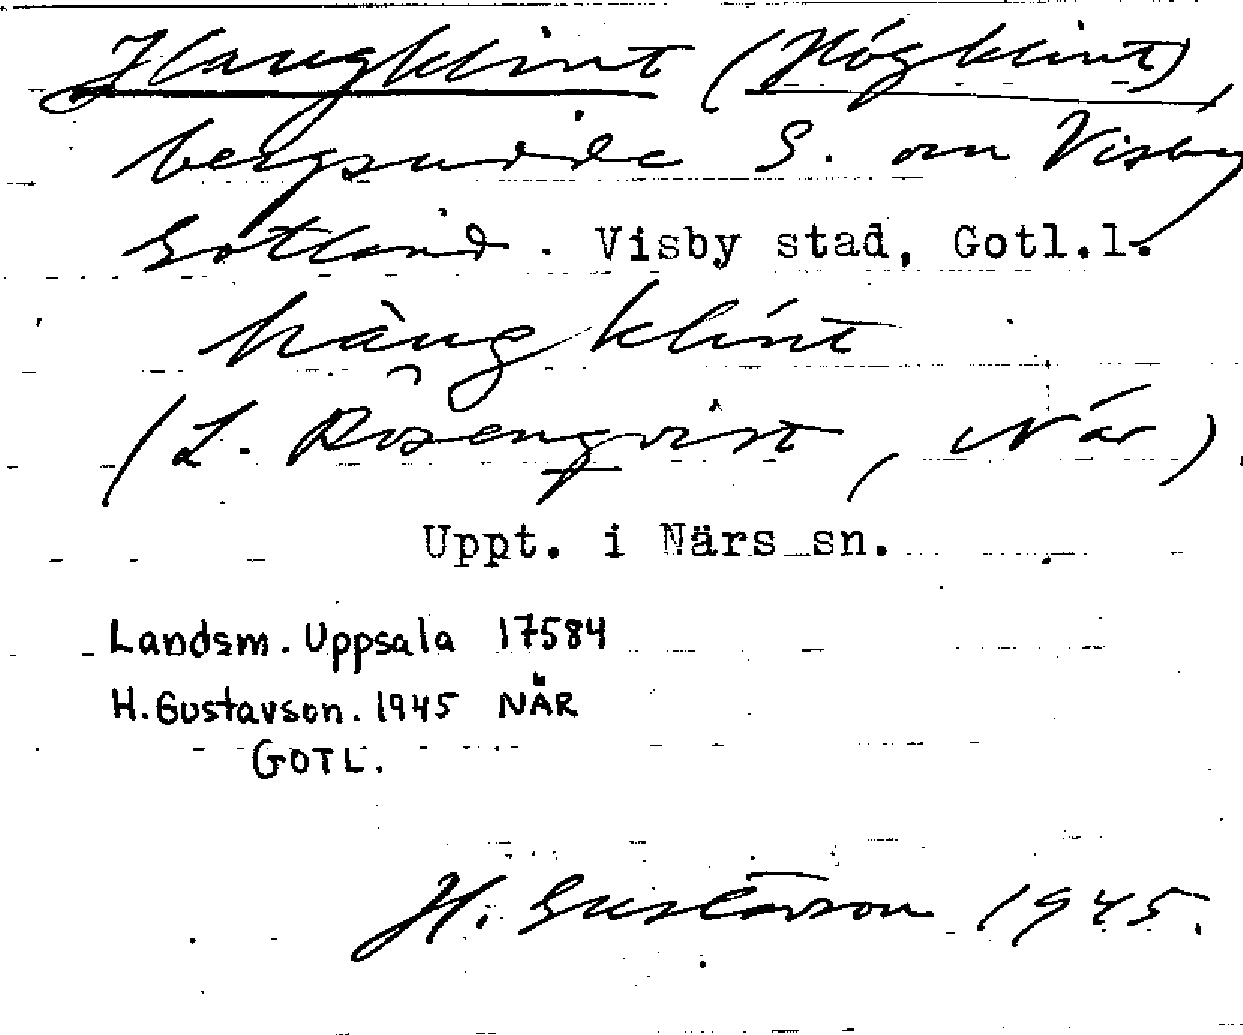 Haugklint (Högklint),
bergsudde S. om Visby
Gotland. Visby stad, Gotl.l.
hàugklint
(L. Rosenqvist, När)
Uppt. i Närs sn.
Landsm. Uppsala 17584
H. Gustavson. 1945 NÄR
GOTL.
H. Gustavson 1945.